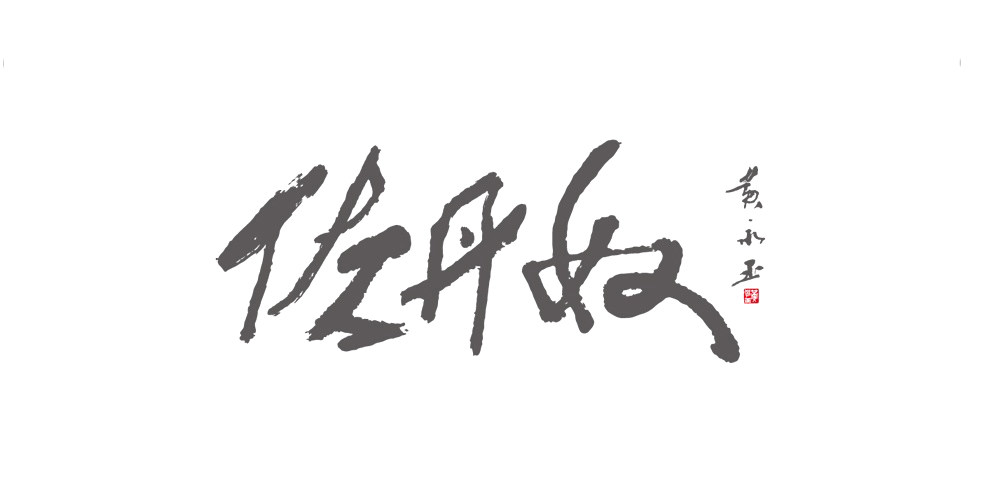 佐丹奴
黄永玉